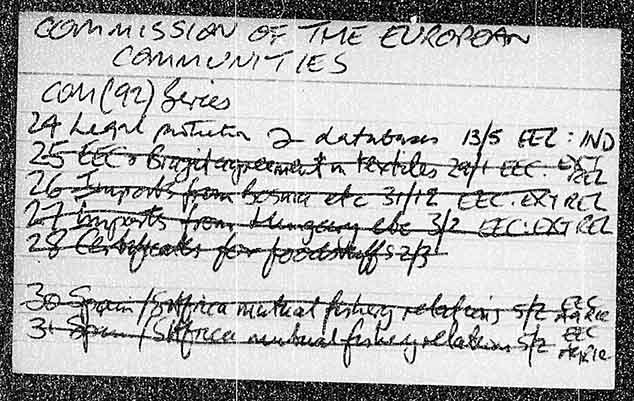 COMMISSION OF THE EUROPEAN
COMMUNITIES
COM(92) Series
24 Legal protection of databases 13/5 EEC: IND
25 EEC & Brazil agreement on textiles 29/1 EEC. EXT REL
26 Imports from Bosnia etc 31/12 EEC. EXT REL
27 Imports from Hungary etc 3/2 EEC. EXT REL
28 Certificates for foodstuffs 2/3
30 Spain/S Africa mutual fishery relations 5/2 EEC AGRIC
31 Spain/S Africa mutual fishery relations 5/2 EEC AGRIC